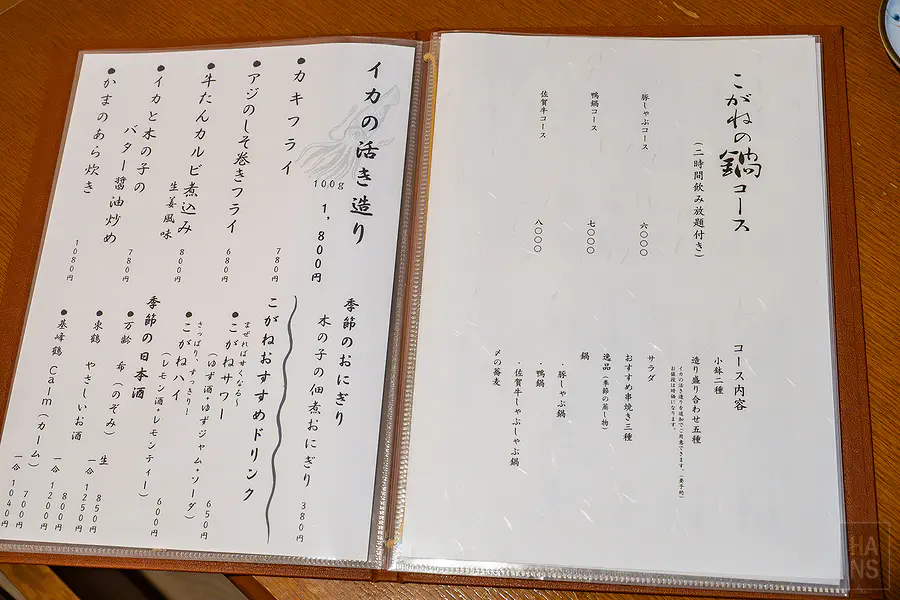 こがねの鍋コース
(二時間飲み放題付き)
豚しゃぶコース 六〇〇〇
鴨鍋コース 七〇〇〇
佐賀牛コース 八〇〇〇
コース内容
小鉢二種
造り盛り合わせ五種
イカの活き造りを追加でご用意できます。(要予約)
お値段は時価になります。
サラダ
おすすめ串焼き三種
逸品(季節の蒸し物)
鍋
・豚しゃぶ鍋
・鴨鍋
・佐賀牛しゃぶしゃぶ鍋
〆の蕎麦
イカの活き造り
100g 1,800円
●カキフライ 780円
●アジのしそ巻きフライ 680円
●牛たんカルビ煮込み
生姜風味 800円
●イカと木の子の
バター醤油炒め 780円
●かまのあら炊き 1080円
季節のおにぎり
木の子の佃煮おにぎり 380円
こがねおすすめドリンク
まぜればすくなる〜
●こがねサワー
(ゆず酒+ゆずジャム+ソーダ) 650円
さっぱり、すっきり!
●こがねハイ
(レモン酒+レモンティー) 600円
季節の日本酒
●万齢 希(のぞみ) 生 850円
一合 1250円
●東鶴 やさしいお酒 800円
一合 1200円
●基峰鶴 Calm(カーム) 700円
一合 1040円
HA
NS